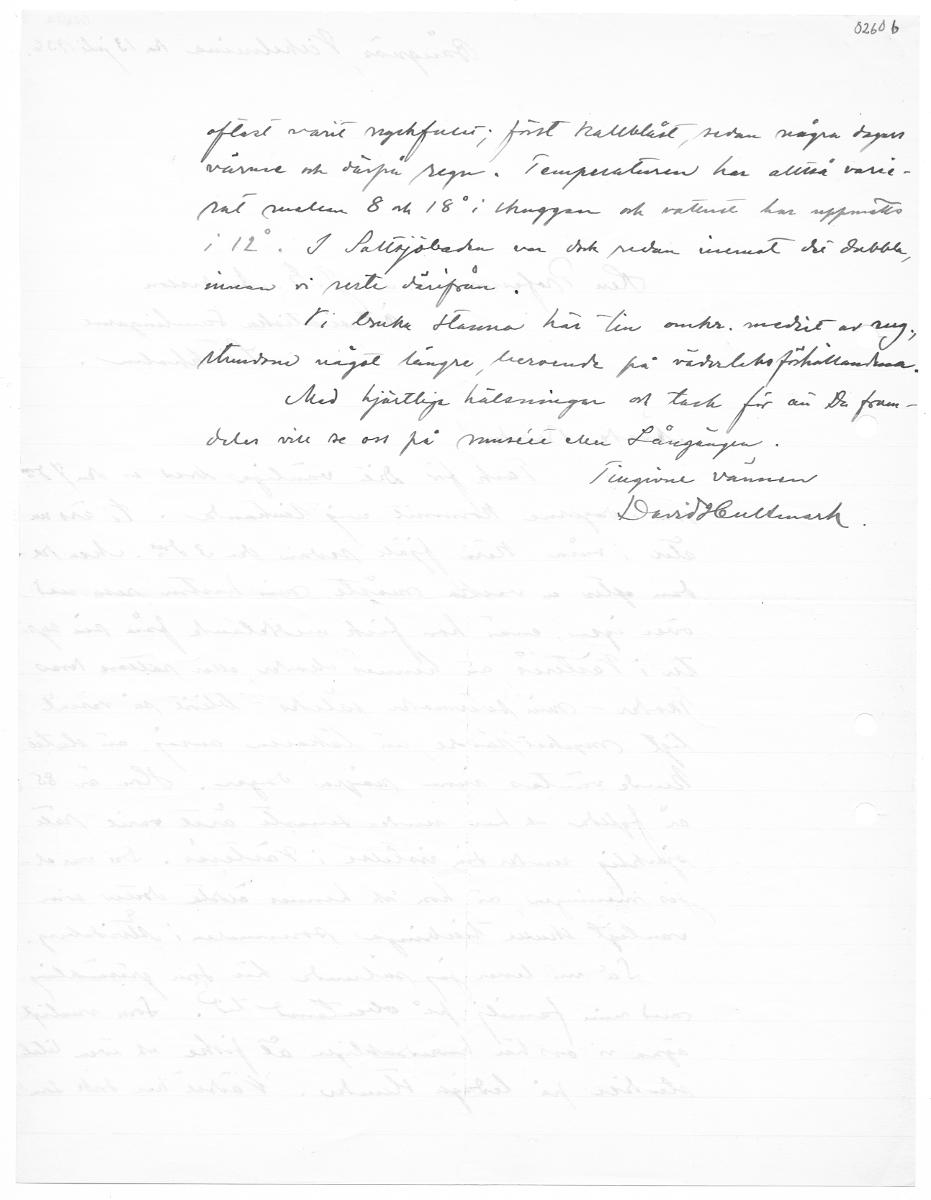 0260 b
oftast varit nyckfullt; först kallblåst, sedan några dagars
värme och därpå regn. Temperaturen har alltså varie-
rat mellan 8 och 18° i skuggan och vattnet har uppmätts
i 12°. I Saltsjöbaden var dock redan inemot det dubbla,
innan vi reste därifrån.
Vi bruka stanna här till omkr. medlet av aug.,
stundom något längre, beroende på väderleksförhållandena.
Med hjärtliga hälsningar och tack för att Du fram-
deles vill se oss på muséet eller Långängen.
Tillgivne vännen
David Hultmark.